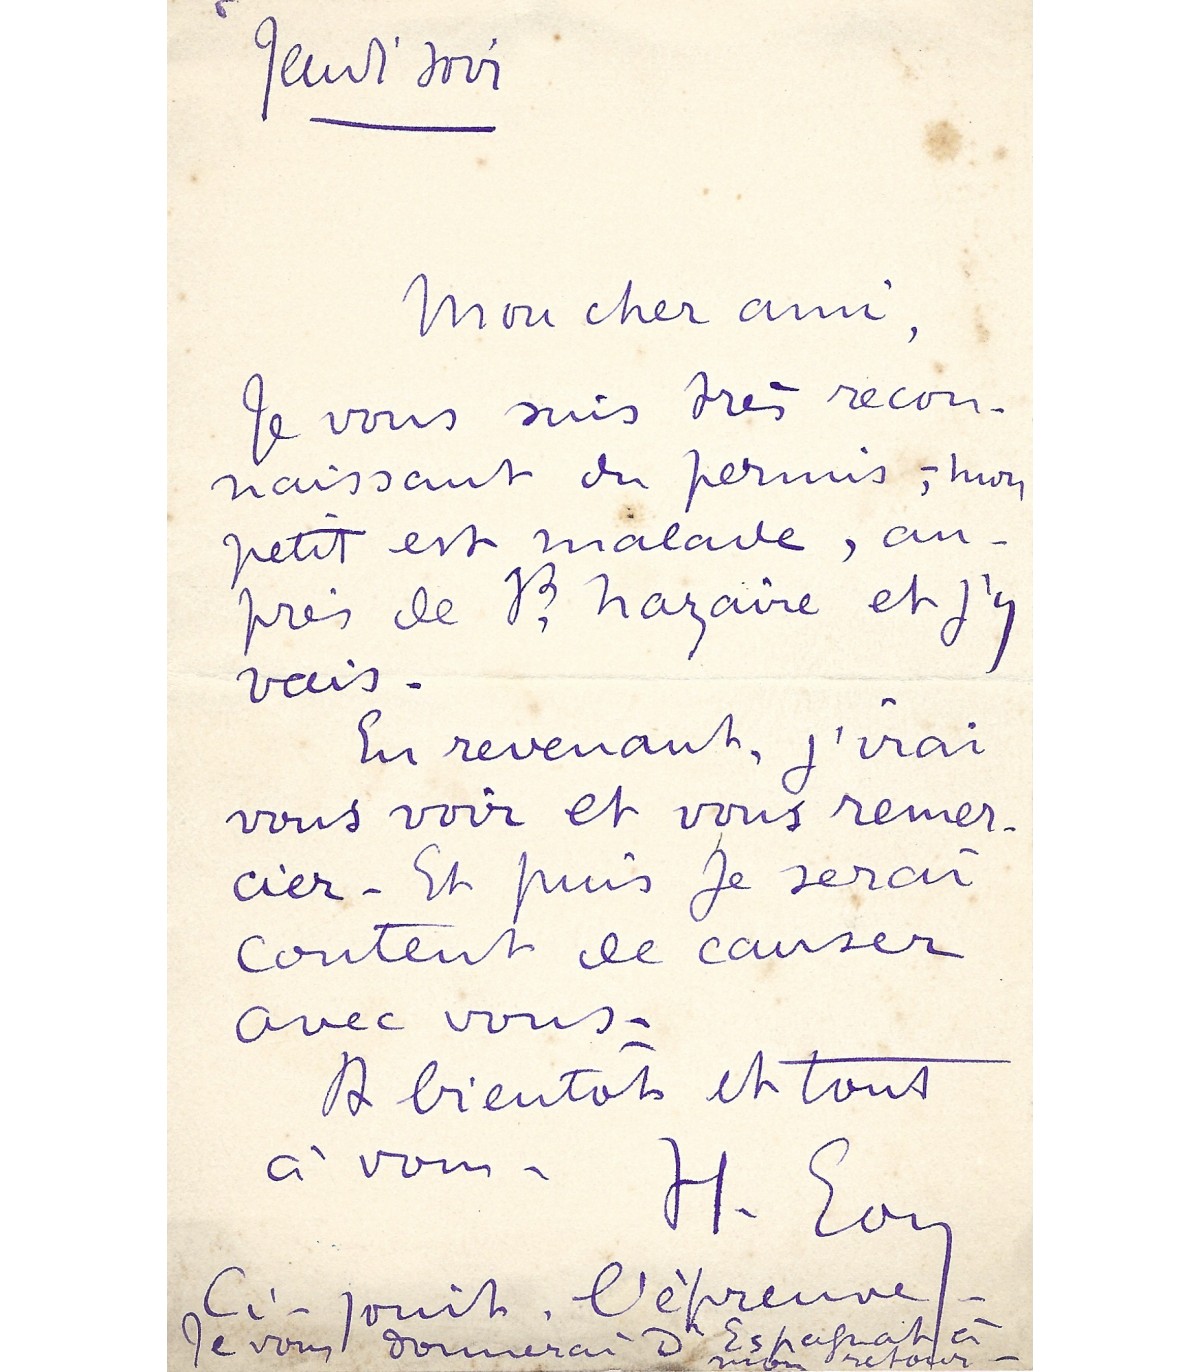 Jeudi soir
Mon cher ami,
Je vous suis très recon-
naissant du permis ; mon
petit est malade, au-
près de St Nazaire et j'y
vais.
En revenant, j'irai
vous voir et vous remer-
cier - Et puis je serai
content de causer
avec vous -
A bientôt et tout
à vous -
H.
Ci-joint, l'épreuve -
Je vous donnerai D'Espagnat à
mon retour -